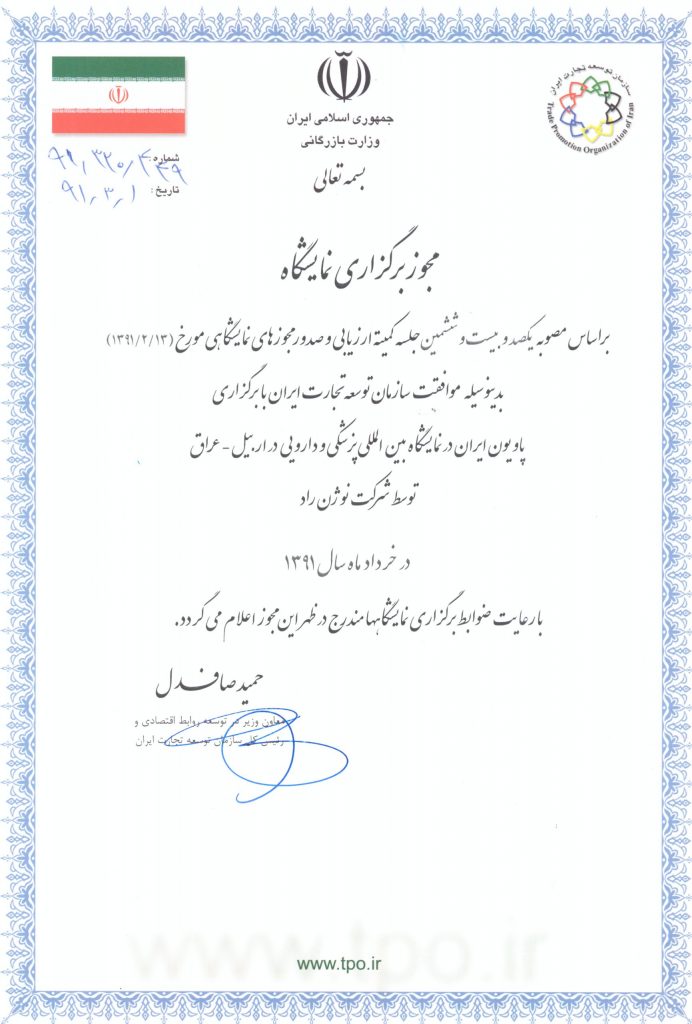 جمهوری اسلامی ایران
وزارت بازرگانی
بسمه تعالی
سازمان توسعه تجارت ایران
Trade Promotion Organization of Iran
شماره:
تاریخ: ۹۱٫۳٫۱
مجوز برگزاری نمایشگاه
براساس مصوبه یکصد و بیست و ششمین جلسه کمیته ارزیابی و صدور مجوزهای نمایشگاهی مورخ (۱۳۹۱/۲/۱۳)
بدینوسیله موافقت سازمان توسعه تجارت ایران با برگزاری
پاویون ایران در نمایشگاه بین المللی پزشکی و دارویی در اربیل - عراق
توسط شرکت نوژن راد
در خرداد ماه سال ۱۳۹۱
با رعایت ضوابط برگزاری نمایشگاهها مندرج در ظهر این مجوز اعلام می گردد.
حمید صافدل
معاون وزیر در توسعه روابط اقتصادی و
رئیس کل سازمان توسعه تجارت ایران
www.tpo.ir
www.tpo.ir